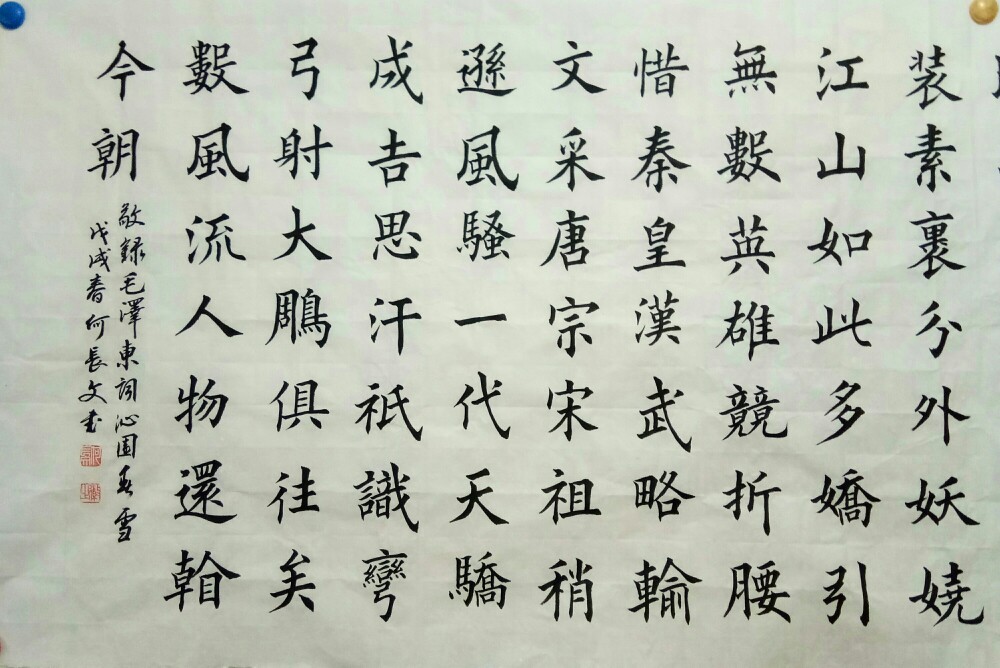 装素裹分外妖嬈
江山如此多嬌引
無數英雄競折腰
惜秦皇漢武略輸
文采唐宗宋祖稍
遜風騷一代天驕
成吉思汗祇識彎
弓射大鵰俱往矣
數風流人物還
今朝
敬録毛澤東詞沁園春 雪
戊戌春何長文書